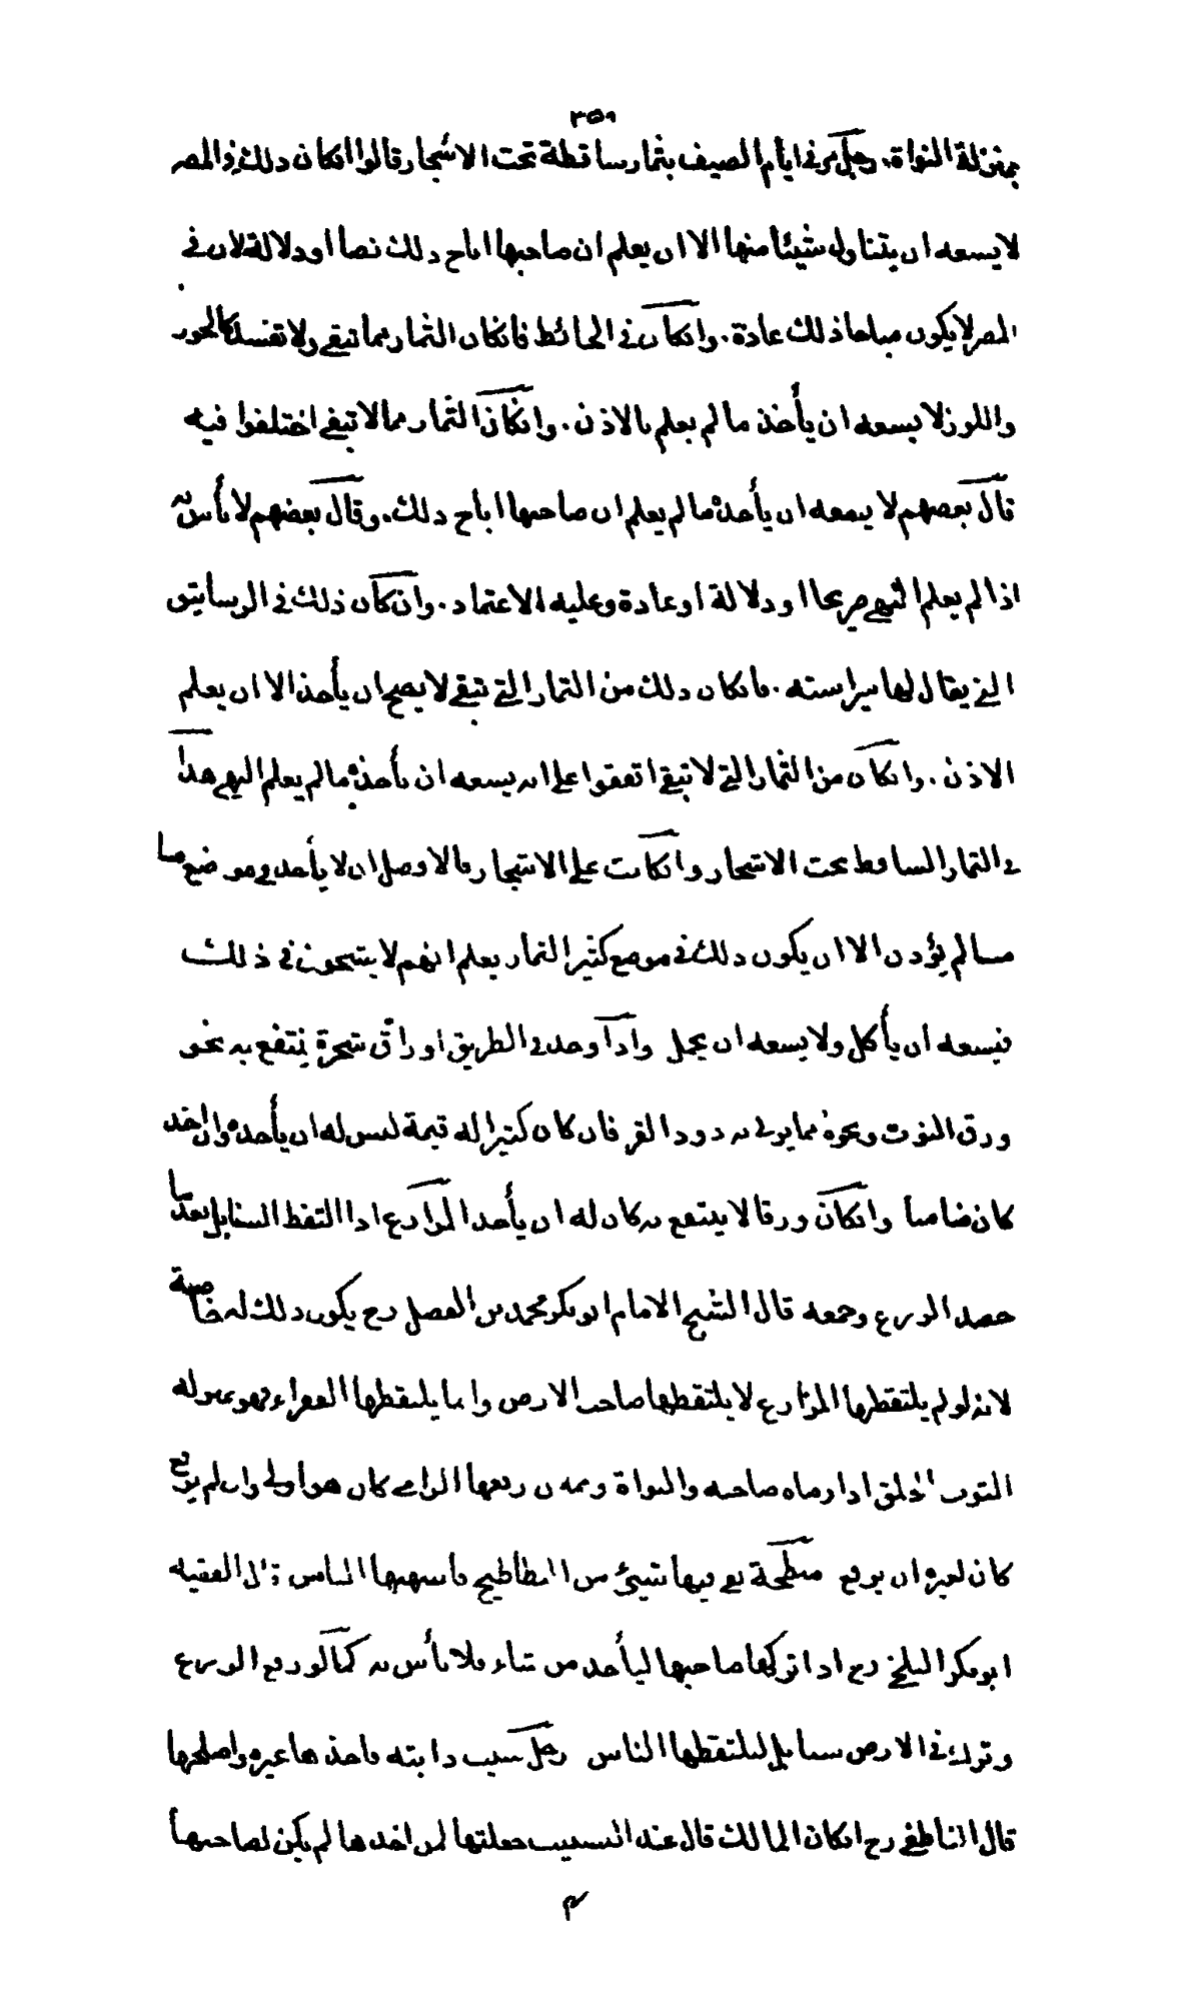 ٣٥٩
بمنزلة النواة. رجل مر في ايام الصيف بثمار ساقطة تحت الاشجار قالوا انكان ذلك في المصر
لا يسعه ان يتناول شيئا منها الا ان يعلم ان صاحبها اباح ذلك نصا او دلالة لان في
المصر لا يكون مباحا ذلك عادة. وانكان في الحائط فانكان الثمار مما تبقى ولا تفسد كالجوز
واللوز لا يسعه ان يأخذ ما لم يعلم بالاذن. وانكان الثمار مما لا تبقى اختلفوا فيه
قال بعضهم لا يسعه ان يأخذه ما لم يعلم ان صاحبها اباح ذلك. وقال بعضهم لا بأس به
اذا لم يعلم النهي صريحا او دلالة او عادة وعليه الاعتماد. وان كان ذلك في الرساتيق
التي يقال لها ميراسته. فانكان ذلك من الثمار التي تبقى لا يصح ان يأخذ الا ان يعلم
الاذن. وانكان من الثمار التي لا تبقى اتفقوا على انه يسعه ان يأخذه ما لم يعلم النهي هذا
في الثمار الساقط تحت الاشجار وانكانت على الاشجار فالافضل ان لا يأخذ في موضع ما
ما لم يؤذن الا ان يكون ذلك في موضع كثير الثمار يعلم انهم لا يشحون في ذلك
فيسعه ان يأكل ولا يسعه ان يحمل واذا وجد في الطريق اوراق شجرة ينتفع به نحو
ورق التوت ونحوه مما يربى به دود القز فان كان كثيرا له قيمة ليس له ان يأخذه وان اخذ
كان ضامنا وانكان ورقا لا ينتفع به كان له ان يأخذ المزارع اذا التقط السنابل بعد ما
حصد الزرع وجمعه قال الشيخ الامام ابو بكر محمد بن الفضل رح يكون ذلك له خاصة
لانه لو لم يلتقطها المزارع لا يلتقطها صاحب الارض وانما يلتقطها الفقراء فهو بمنزلة
الثوب الخلق اذا رماه صاحبه والنواة وممن رفعها الرامي كان هو اولى وان لم يرفع
كان لغيره ان يرفع مبطخة بقي فيها شيئ من البطاطيخ فانتهبها الناس قال الفقيه
ابو بكر البلخي رح اذا تركها صاحبها ليأخذ من شاء فلا بأس به كما لو رفع الزرع
وترك في الارض سنابل ليلتقطها الناس رجل سيب دابته فاخذها غيره واصلحها
قال الناطفي رح انكان المالك قال عند التسييب جعلتها لمن اخذها لم يكن لصاحبها